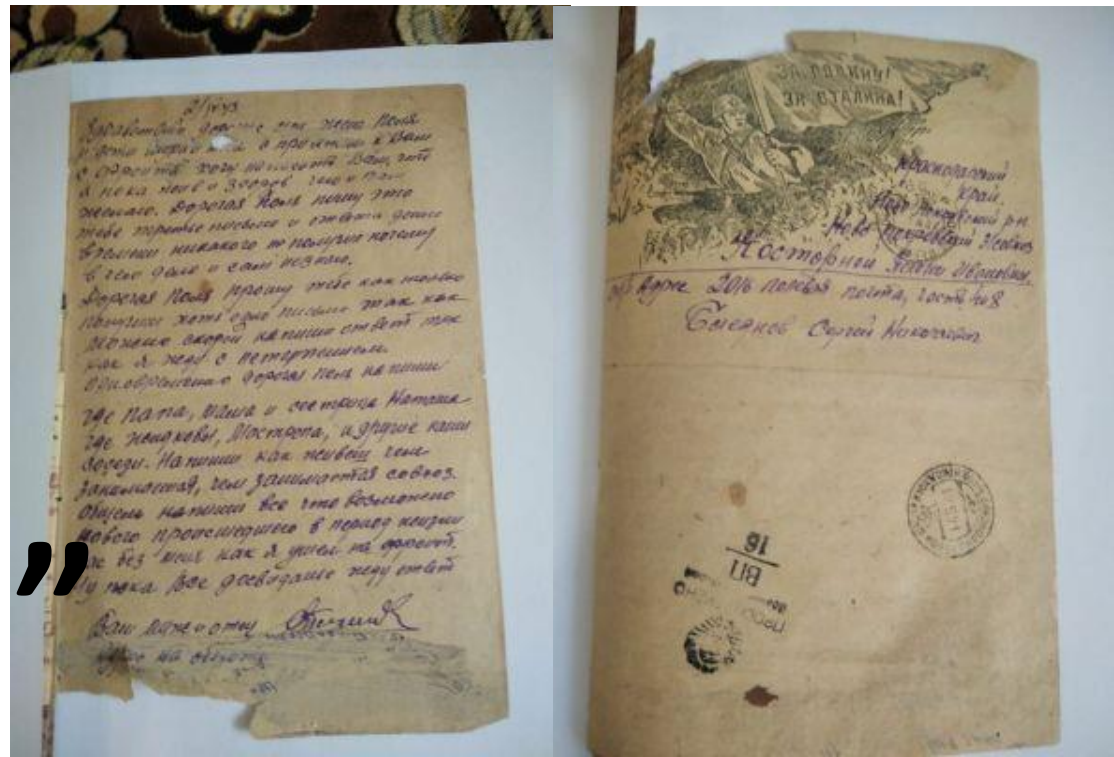 2/IV 43
Здравствуй дорогие моя жена Поля
и дети
с фронта хочу Вам, что
я пока жив и здоров чего и Вам
желаю. Дорогая Поля пишу это
тебе третье письмо и ответа
времени никакого не получил почему
в чем дело и сам незнаю.
Дорогая Поля прошу тебе как только
получиш хотя одно письмо так как
можно скорей напиши ответ так
как я жду с нетерпением.
дорогая Поля напиши
где папа, мама и сестрица Наташа
где и другие наши
соседи. Напиши как живеш чем
занимаешся, чем занимается совхоз.
Общем напиши все что возможно
нового происшедшего в период жизни
вас без меня как я ушел на фронт.
Ну пока Все досвидание жду ответ
Ваш муж и отец
Адрес на обороте
ЗА РОДИНУ!
ЗА СТАЛИНА!
Краснодарский
Край.
Ново Покровский р-н
Ново Покровский
Ивановне
Обр Адрс 2016 полевая почта, часть 408
Сергей Николаевич
ВП
16